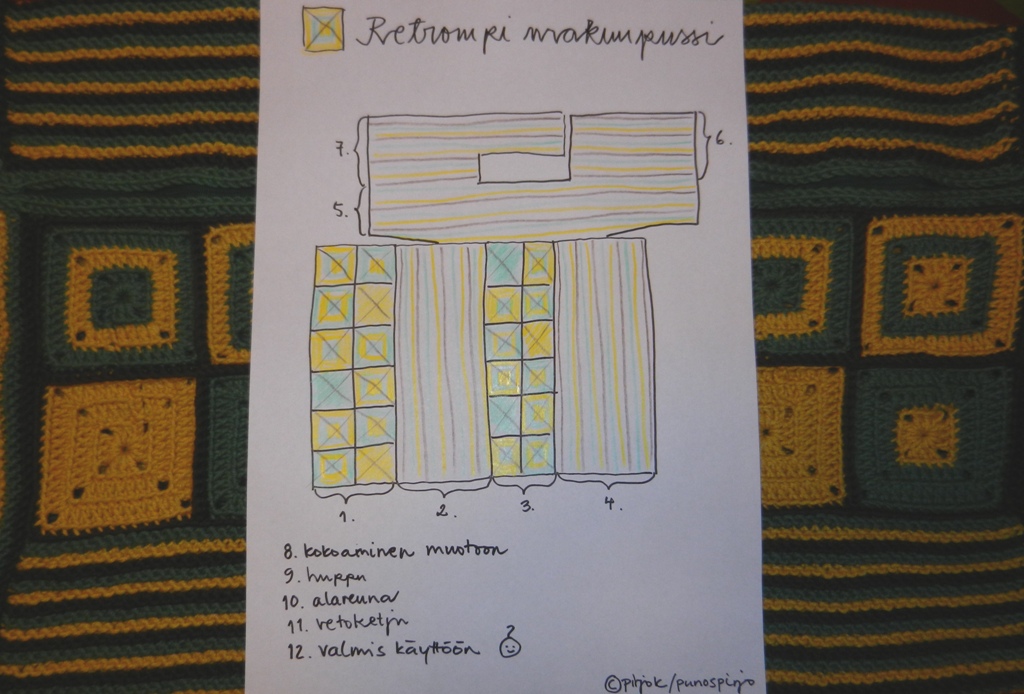 Retrompi makuupussi
7.
6.
5.
1.
2.
3.
4.
8. kokoaminen muotoon
9. huppu
10. alareuna
11. vetoketju
12. valmis käyttöön
©pirjok/punospirjo